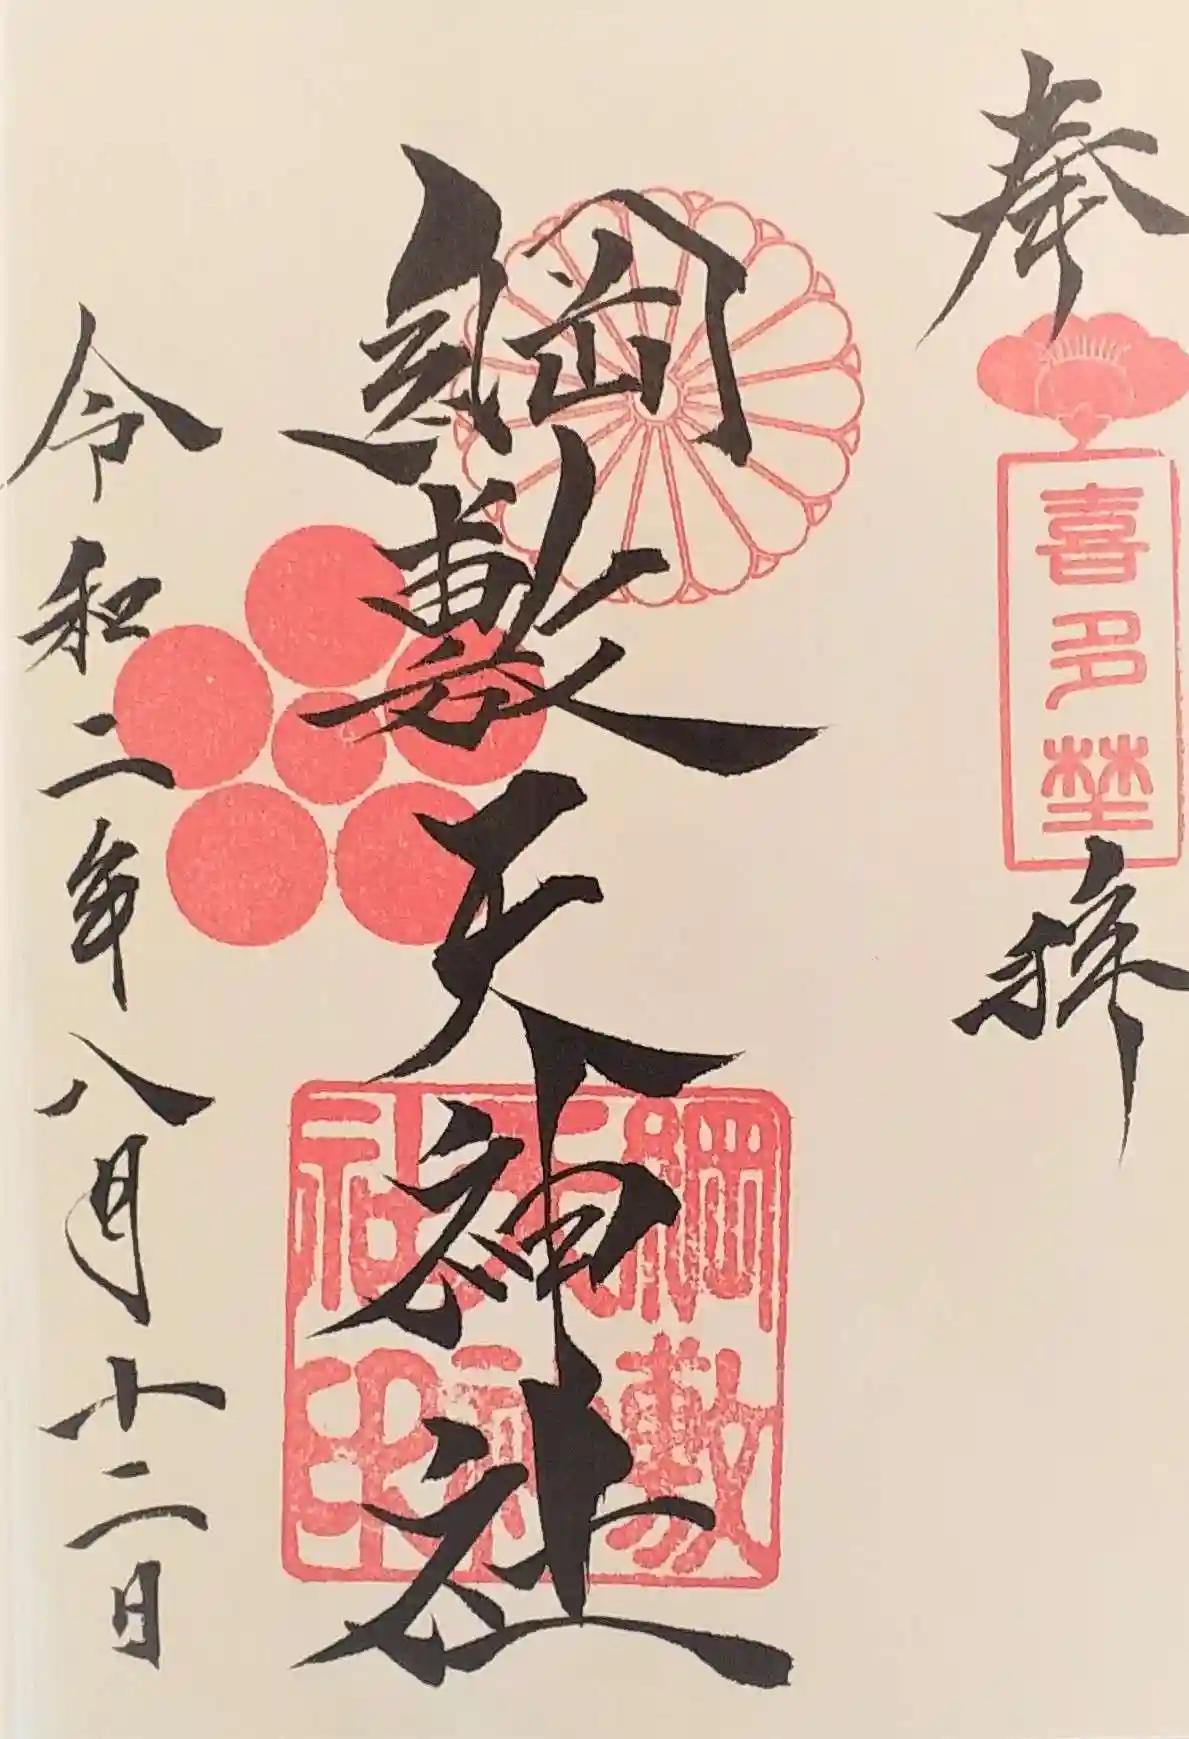 奉拝
喜多埜
綱敷天神社
綱敷
天神
社印
令和二年八月十二日